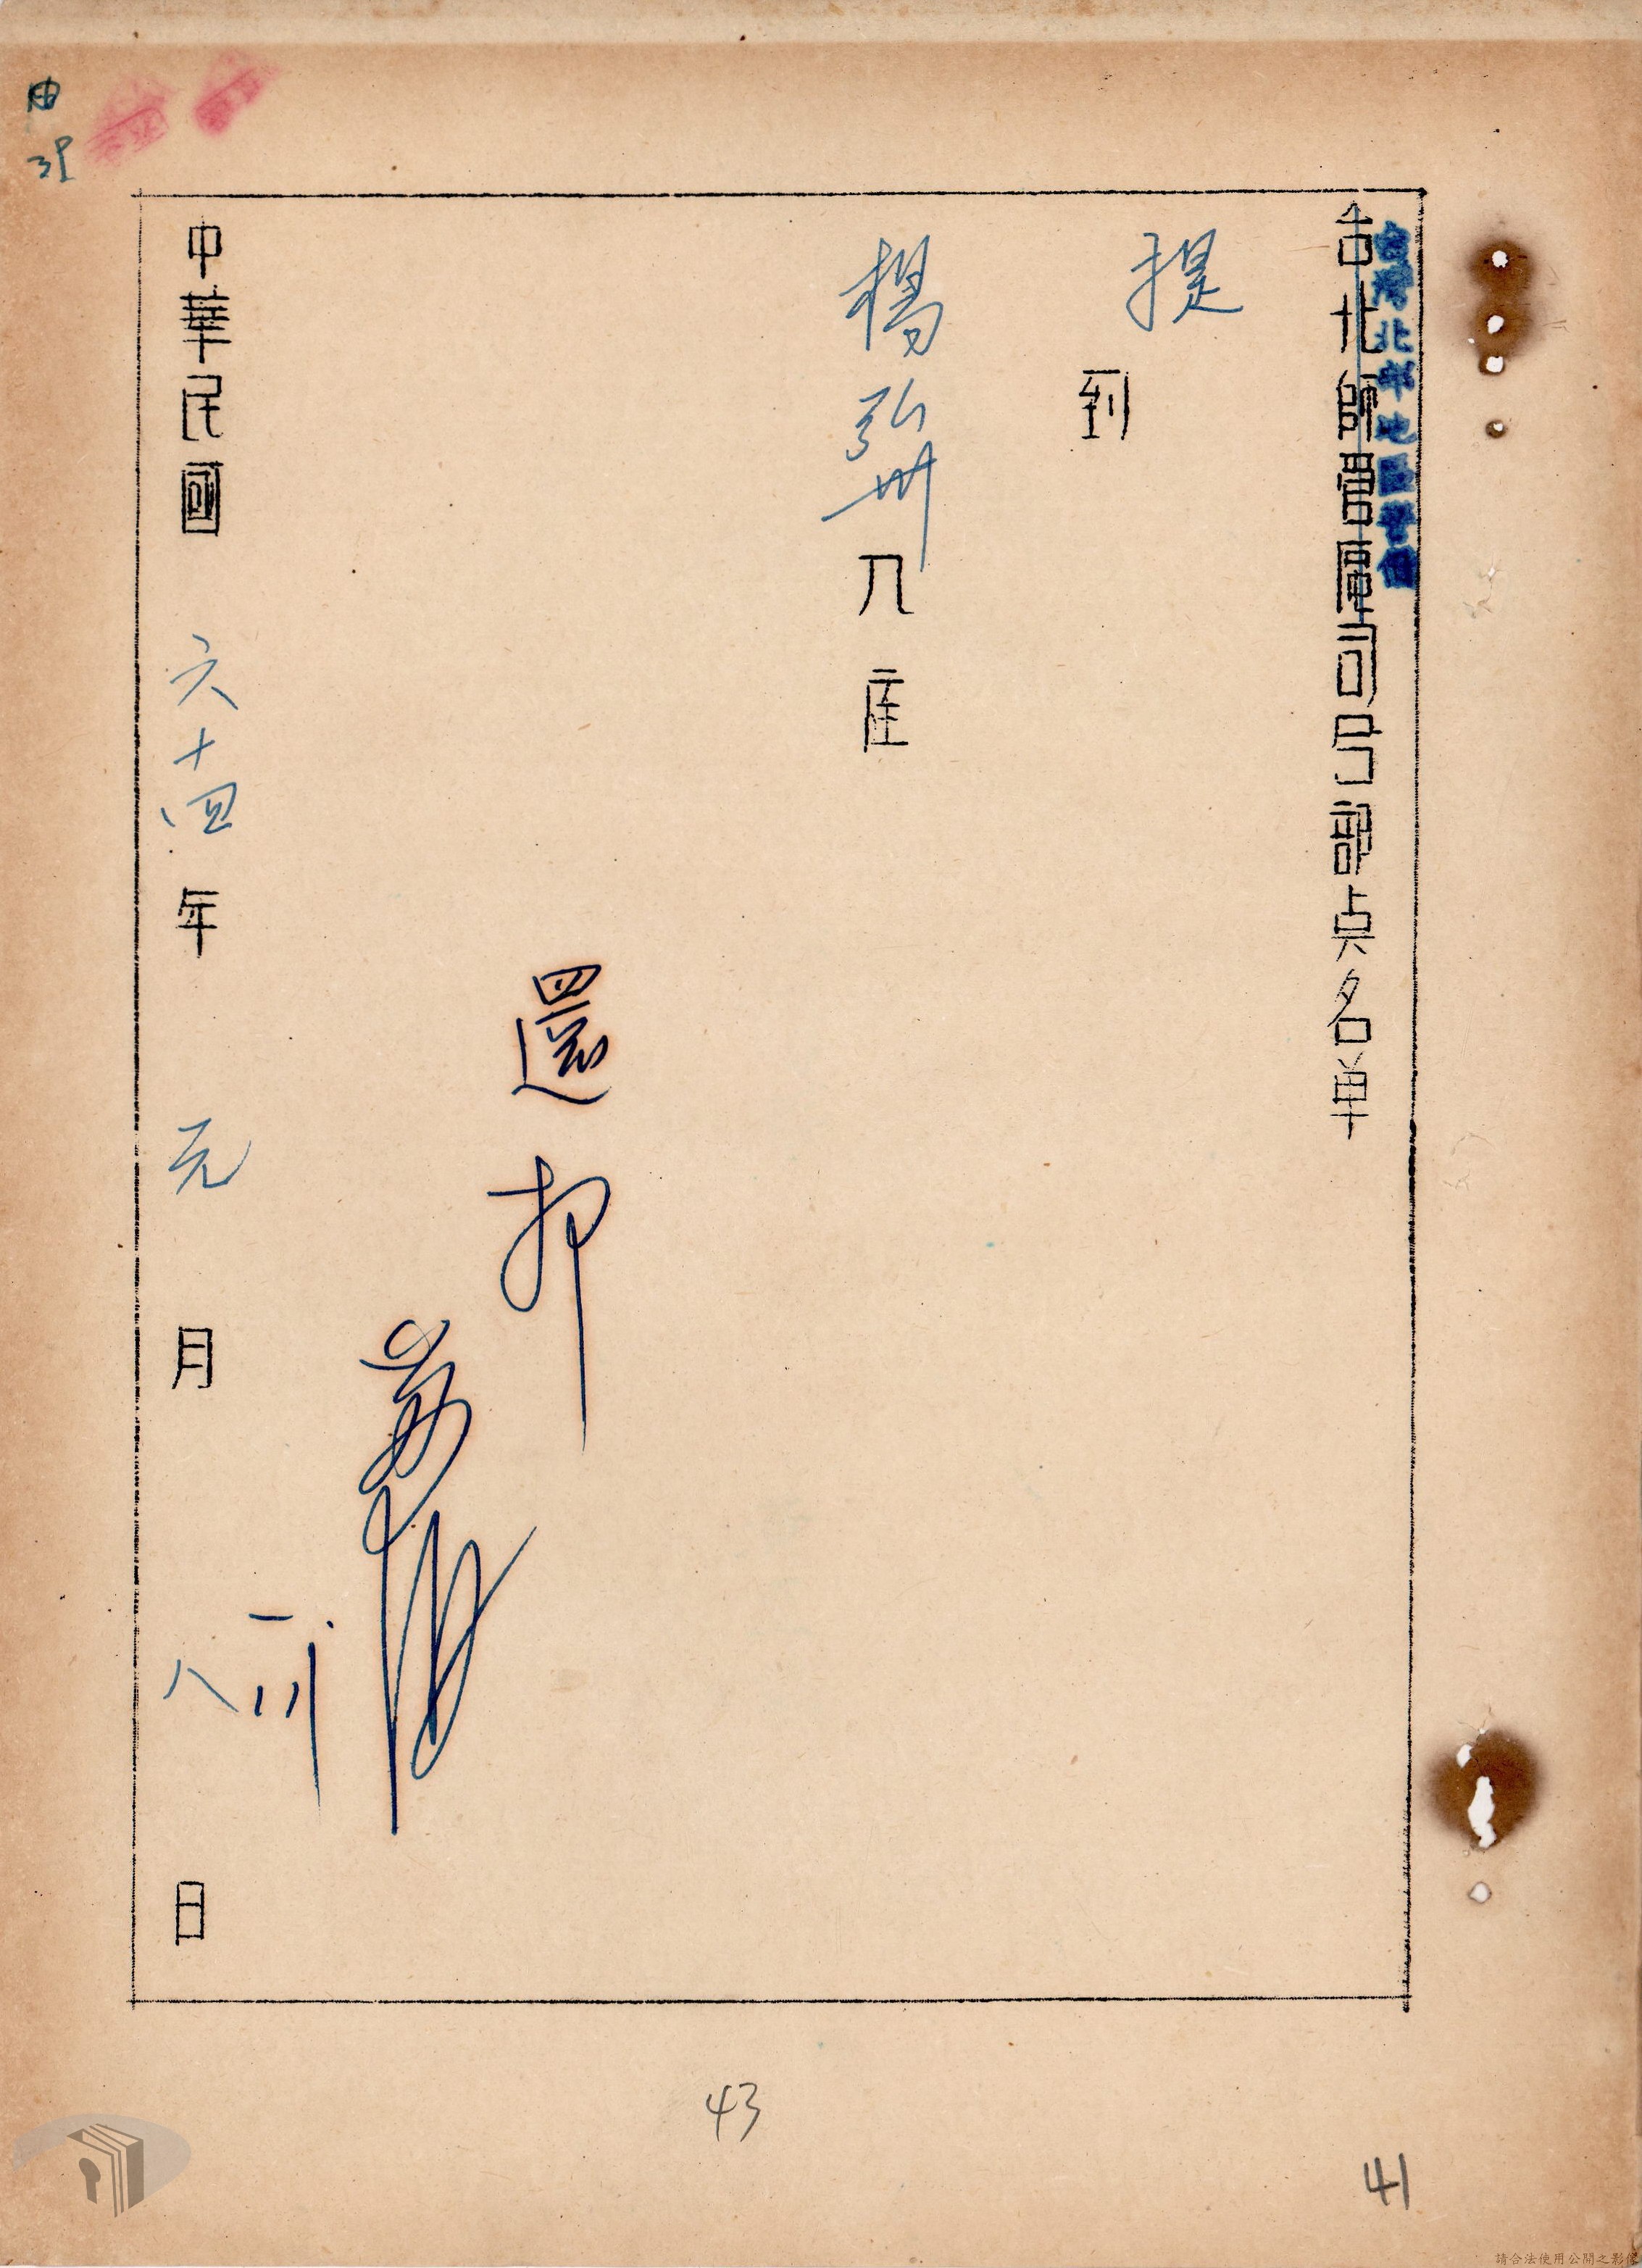 台灣北部地區警備
台北師管區司令部点名单
提
到
楊弘州 入庭
還押
中華民國 六十四 年 元 月 八 日
43
41
請合法使用公開之影像